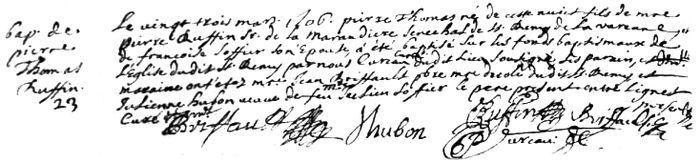 bap. de
pierre
Thomas
Ruffin
23
Le vingt trois mars 1706. pierre Thomas né de cette nuit fils de mre
pierre Ruffin Sr. de la Maraudiere Senechal de St. Remy de la varanne
de francoise Soffier son epouse, a été baptisé sur les fonds baptismaux de
l'eglise dudit St Remy par nous Curé dudit lieu soussigné les parain, et
maraine ont eté mre Jean Briffault pbre mre decole dudit St Remy et
Julienne hubon veuve de feu Soffier le pere present
Curé
Briffault J hubon Ruffin Briffault
Dureau